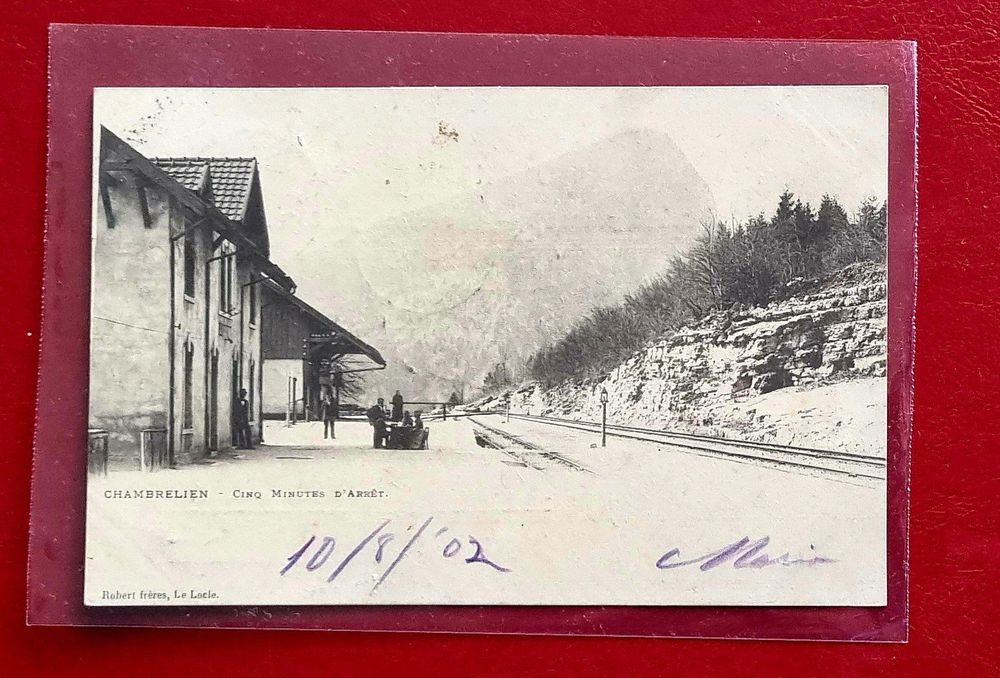 CHAMBRELIEN - CINQ MINUTES D'ARRÊT.
10/8/02 Marie
Robert frères, Le Locle.